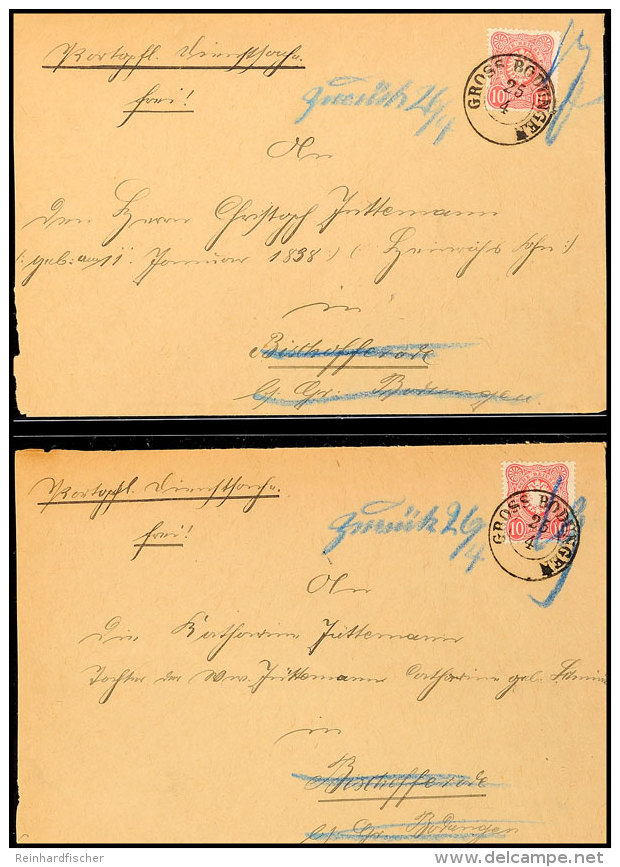 Portopfl. Dienstsache.
frei!
zurück 26/4
10
GROSS BODUNGEN
25
4
An
den Herrn Christoph Jüttemann
(: geb: am 11. Januar 1838 :) (: Heinrichs Sohn :)
in
Bischofferode
b/ Gr. Bodungen.
Portopfl. Dienstsache.
frei!
zurück 26/4
10
GROSS BODUNGEN
25
4
An
Die Katharine Jüttemann
Tochter der Ww. Jüttemann Catharine geb.
in
Bischofferode
b/ Gr. Bodungen
Reinhardfischer
delcampe.net